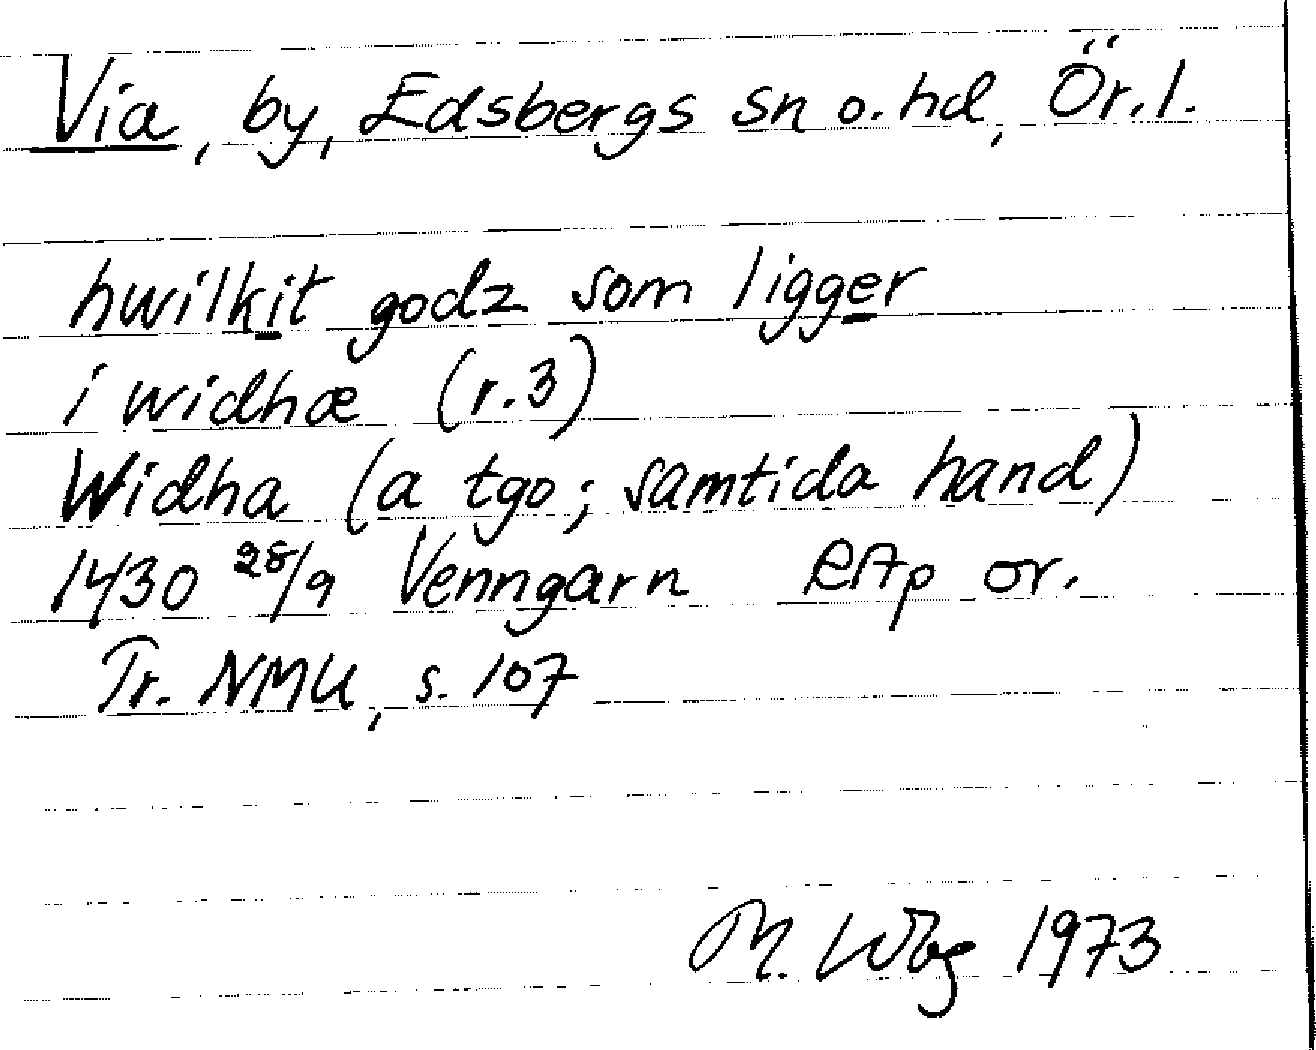 Via, by, Edsbergs sn o. hd, Ör. l.
hwilkit godz som ligger
i widhæ (r.3)
Widha (a tgo; samtida hand)
1430 28/9 Venngarn RAp or.
Tr. NMU, s. 107
M. Wbg 1973